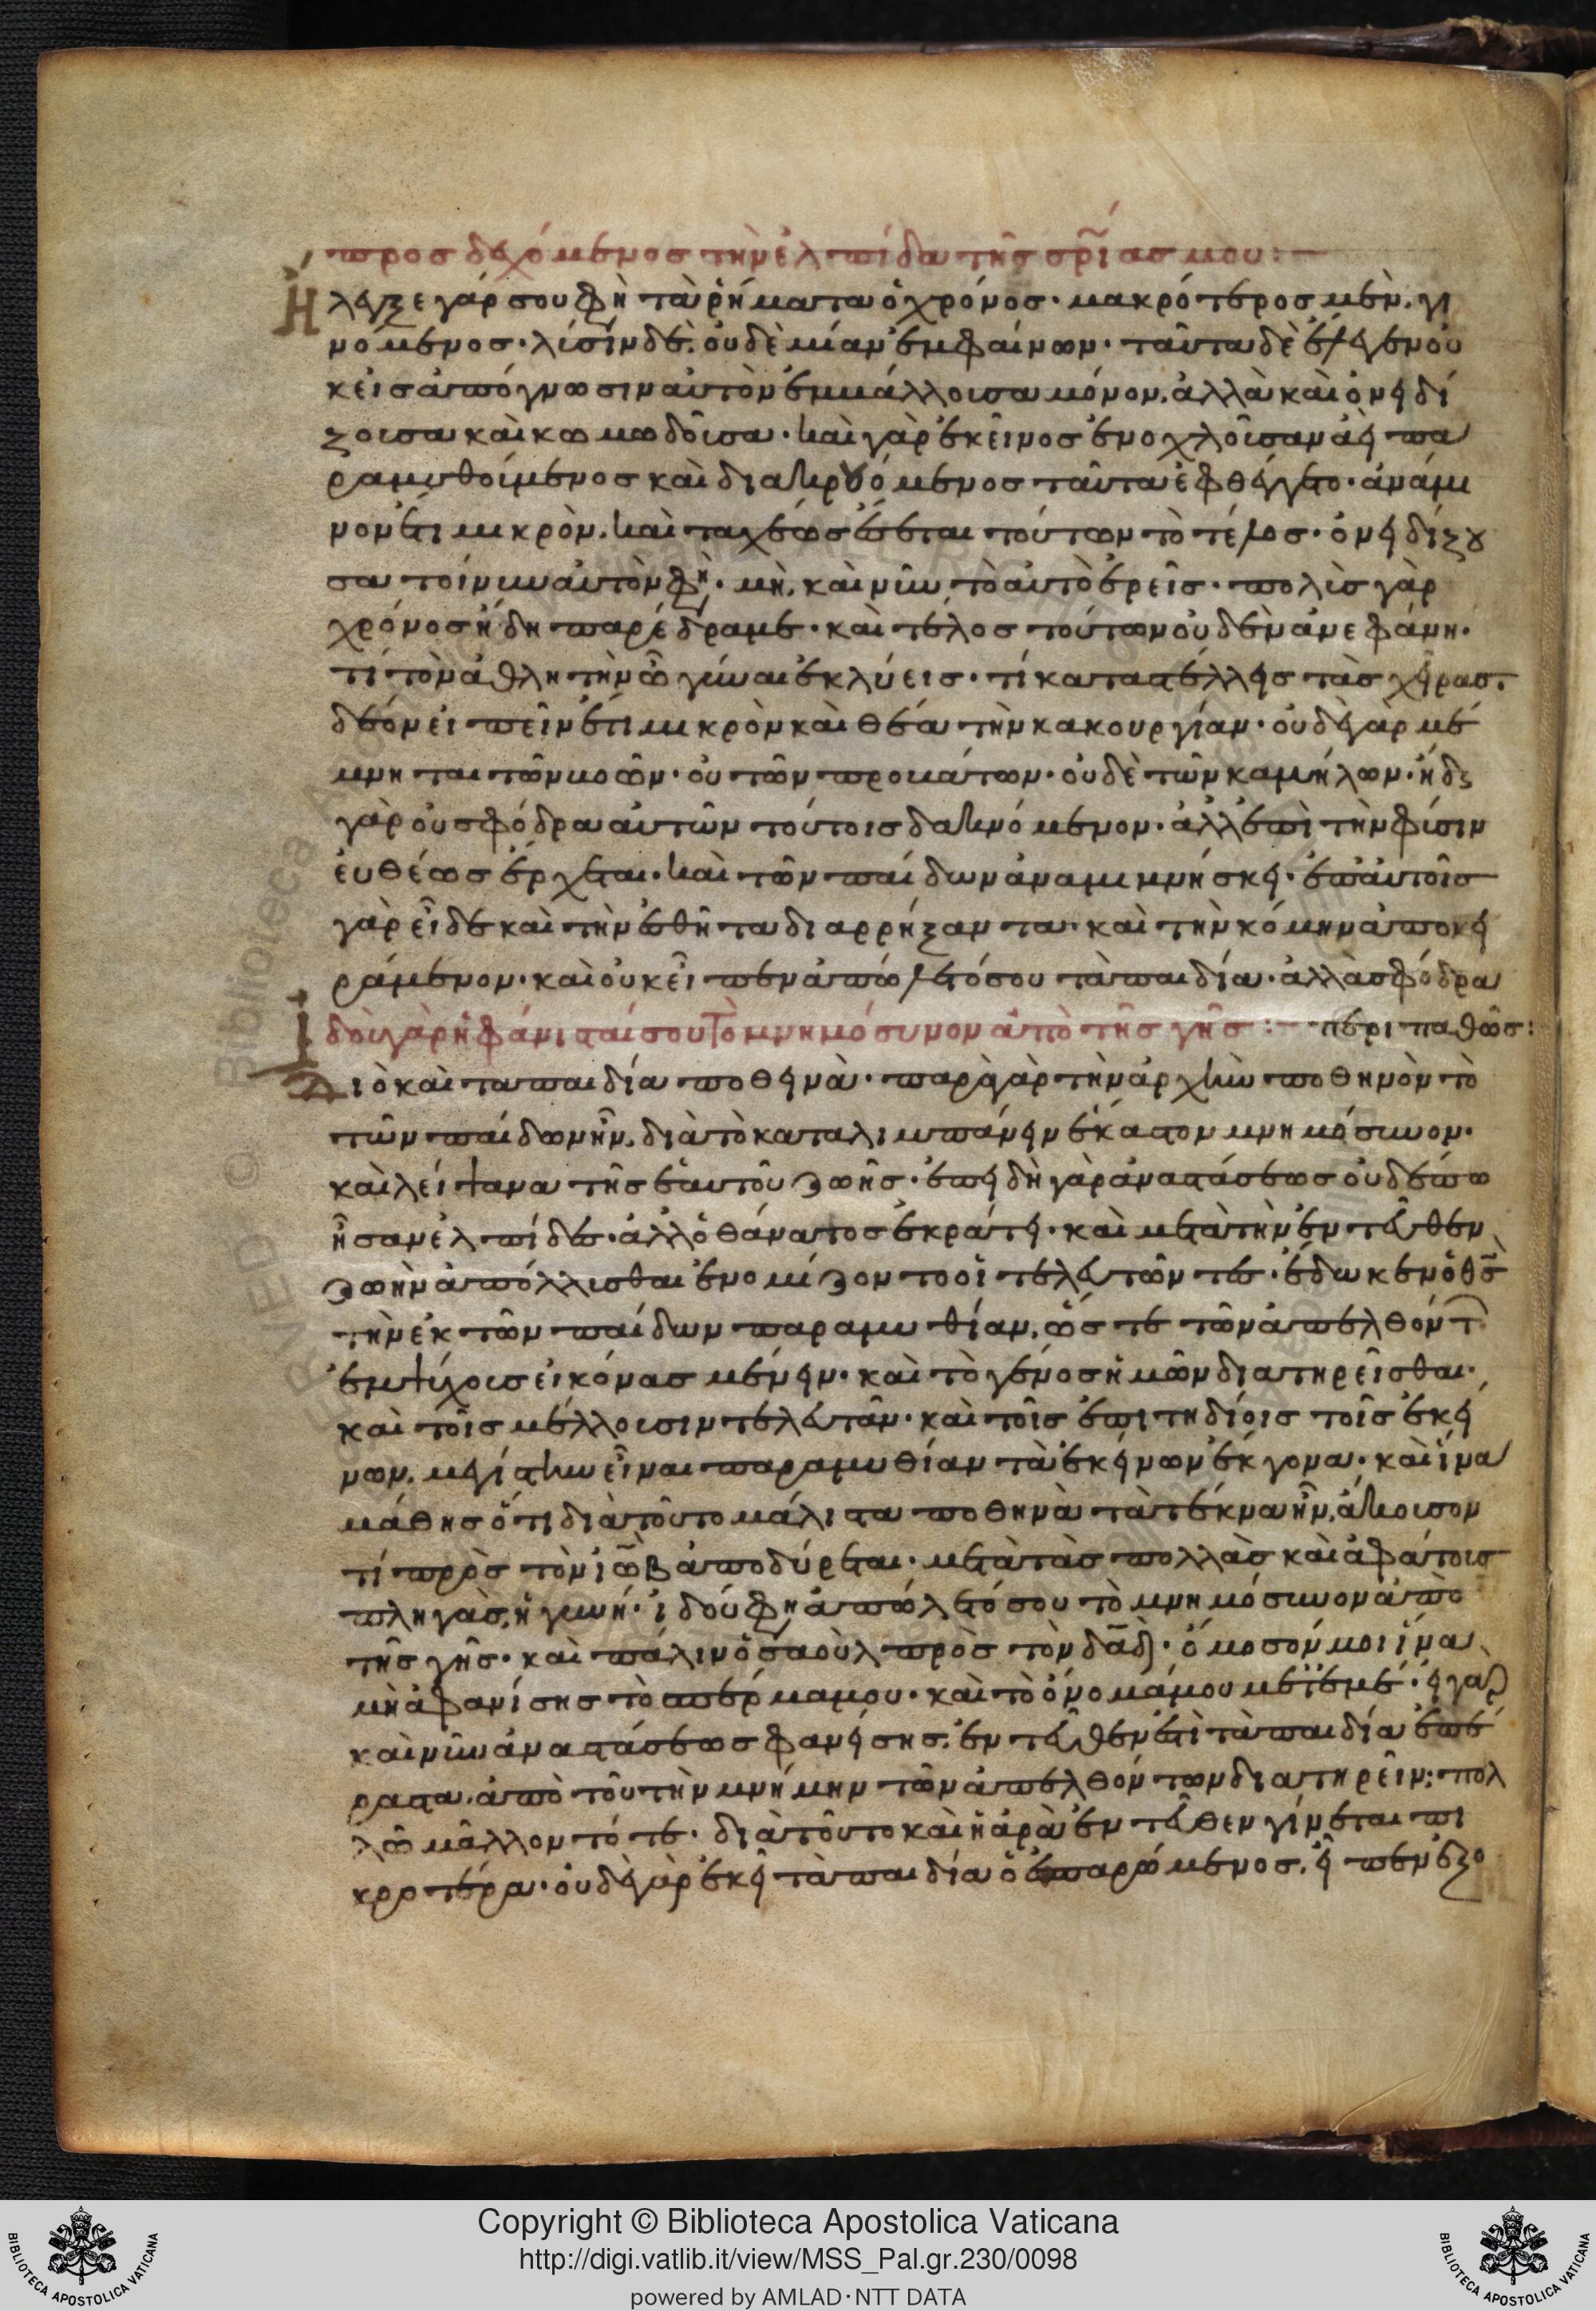 προσδεχόμενος τὴν ἐλπίδα τῆς σρ̃ίας μου:—
Ἤλεγξε γάρ σου φη τὰ ῥήματα ὁ χρόνος· μακρότερος μὲν γι
νόμενος· λύσιν δὲ οὐδὲ μίαν ἐμφαίνων· ταῦτα δὲ ἔλεγεν οὐ
κ εἰς ἀπόγνωσιν αὐτὸν ἐμβάλλουσα μόνον, ἀλλὰ καὶ ὀνειδί
ζουσα καὶ κωμωδοῦσα· καὶ γὰρ ἐκεῖνος ἐνοχλοῦσαν ἀεὶ πα
ραμυθούμενος καὶ διακρουόμενος ταῦτα ἐφθέγγετο· ἀνάμει
νον ἔτι μικρὸν, καὶ ταχέως ἔσται τούτων τὸ τέλος· ὀνειδίζου
σα τοίνυν αὐτὸν φη· μὴ, καὶ νῦν τὸ αὐτὸ ἐρεῖς· πολὺς γὰρ
χρόνος ἤδη παρέδραμε· καὶ τέλος τούτων οὐδὲν ἀνεφάνη·
τί τὸν ἀθλητὴν ὦ γύναι ἐκλύεις· τί καταστέλλεις τὰς χεῖρας·
δέον εἰπεῖν ἔτι μικρὸν καὶ θέα τὴν κακουργίαν· οὐδὲ γὰρ μέ
μνηται τῶν βοῶν· οὐ τῶν προβάτων· οὐδὲ τῶν καμήλων· ἤδει
γὰρ οὐ σφόδρα αὐτὸν τούτοις δακνόμενον· ἀλλ' ἐπὶ τὴν φύσιν
εὐθέως ἔρχεται· καὶ τῶν παίδων ἀναμιμνήσκει· ἐπ' αὐτοῖς
γὰρ εἶδε καὶ τὴν ἐσθῆτα διαρρήξαντα· καὶ τὴν κόμην ἀποκει
ράμενον· καὶ οὐκ εἶπεν ἀπώλετό σου τὰ παιδία· ἀλλὰ σφόδρα
Ἰδοὺ γὰρ ἠφάνισταί σου τὸ μνημόσυνον ἀπὸ τῆς γῆς:— περιπαθῶς:
Διὸ καὶ τὰ παιδία ποθεινὰ· παρὰ γὰρ τὴν ἀρχὴν ποθεινὸν τὸ
τῶν παίδων ἦν, διὰ τὸ καταλιμπάνειν ἕκαστον μνημόσυνον·
καὶ λείψανα τῆς ἑαυτοῦ ζωῆς· ἐπειδὴ γὰρ ἀναστάσεως οὐδέπω
ἦσαν ἐλπίδες· ἀλλ' ὁ θάνατος ἐκράτει· καὶ μετὰ τὴν ἐντεῦθεν
ζωὴν ἀπόλλυσθαι ἐνόμιζον τὸ οἱ τελευτῶντες· ἔδωκεν ὁ θς̃
τὴν ἐκ τῶν παίδων παραμυθίαν, ὥστε τῶν ἀπελθόντ
ἐμψύχους εἰκόνας μένειν· καὶ τὸ γένος ἡμῶν διατηρεῖσθαι·
καὶ τοῖς μέλλουσιν τελευτᾶν· καὶ τοῖς ἐπιτηδείοις τοῖς ἐκεί
νων, μεγίστην εἶναι παραμυθίαν τὰ ἐκείνων ἔκγονα· καὶ ἵνα
μάθης ὅτι διὰ τοῦτο μάλιστα ποθεινὰ τὰ τέκνα ἦν, ἄκουσον
τί πρὸς τὸν ἰὼβ ἀποδύρεται· μετὰ τὰς πολλὰς καὶ ἀφάτους
πληγὰς, ἡ γυνή· ἰδού φη ἀπώλετό σου τὸ μνημόσυνον ἀπὸ
τῆς γῆς· καὶ πάλιν ὁ σαοὺλ πρὸς τὸν δᾱδ· ὄμοσόν μοι ἵνα
μὴ ἀφανίσης τὸ σπέρμα μου· καὶ τὸ ὄνομά μου μετ' ἐμέ· εἰ γὰρ
καὶ νῦν ἀναστάσεως φανείσης, ἐντεῦθεν ἔτι τὰ παιδία ἐπέ
ραστα, ἀπὸ τοῦ τὴν μνήμην τῶν ἀπελθόντων διατηρεῖν: πολ
λῶ μᾶλλον τότε· διὰ τοῦτο καὶ ἡ ἀρὰ ἐντεῦθεν γίνεται πι
κροτέρα· οὐδὲ γὰρ ἐκεῖ τὰ παιδία ὁ ἐπαρώμενος, εἶπεν ἐξο
Copyright © Biblioteca Apostolica Vaticana
http://digi.vatlib.it/view/MSS_Pal.gr.230/0098
powered by AMLAD·NTT DATA
BIBLIOTECA APOSTOLICA VATICANA
BIBLIOTECA APOSTOLICA VATICANA